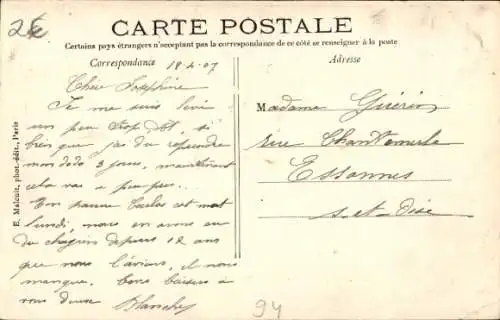 2€
CARTE POSTALE
Certains pays étrangers n'acceptant pas la correspondance de ce côté se renseigner à la poste
Correspondance
Adresse
18-4-07
Chère Joséphine
Je me suis levé
un peu trop tôt, si
bien que j'ai du reprendre
mon dodo 3 jours, maintenant
cela va à peu près.
mort
lundi, nous en avons eu
du chagrin depuis 12 ans
que nous l'avions, il nous
manque. Bons baisers à
vous
Blanche
Madame Guérin
rue Chantemerle
Essonnes
S.-et-Oise
E. Malcuit, phot.-édit., Paris
94